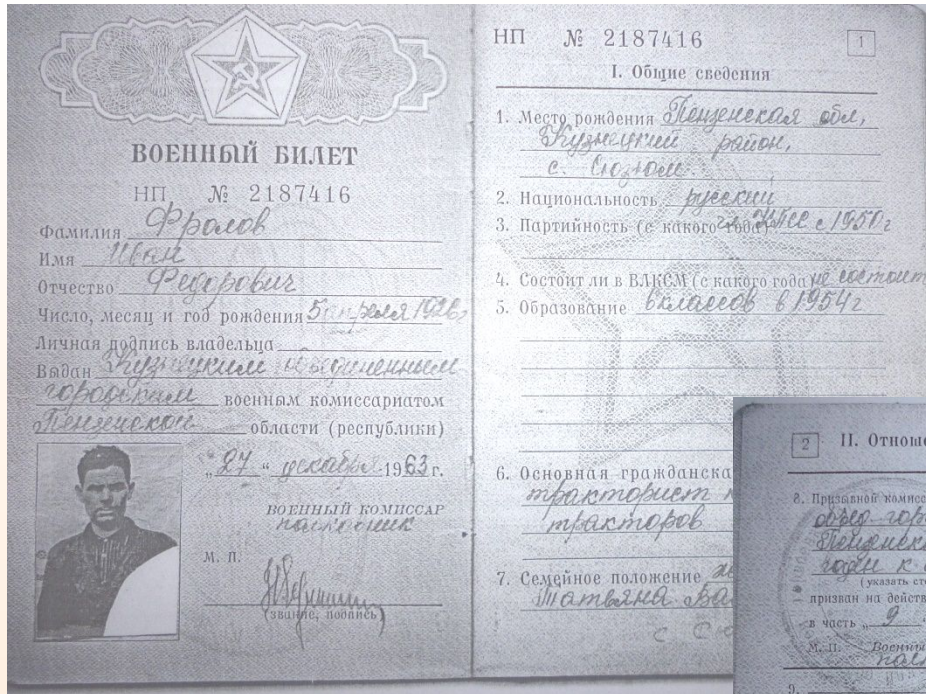 ВОЕННЫЙ БИЛЕТ
НП № 2187416
Фамилия Фролов
Имя Иван
Отчество Федорович
Число, месяц и год рождения 5 апреля 1926г
Личная подпись владельца
Выдан Кузнецким объединенным
городским военным комиссариатом
Пензенской области (республики)
„27“ декабря 1963 г.
ВОЕННЫЙ КОМИССАР
полковник
М. П.
(звание, подпись)
НП № 2187416
1
I. Общие сведения
1. Место рождения Пензенская обл,
Кузнецкий район,
с. Сюзюм
2. Национальность русский
3. Партийность (с какого года) КПСС с 1950г
4. Состоит ли в ВЛКСМ (с какого года) не состоит
5. Образование 6 классов в 1954г
6. Основная гражданска
тракторист
тракторов
7. Семейное положение
Татьяна Ва
с
2 II. Отноше
8. Призывной комисс
объед. гор
Пензенск
годен к
(указать сте
призван на действ
в часть „9
М. П. Военны
полк
9.